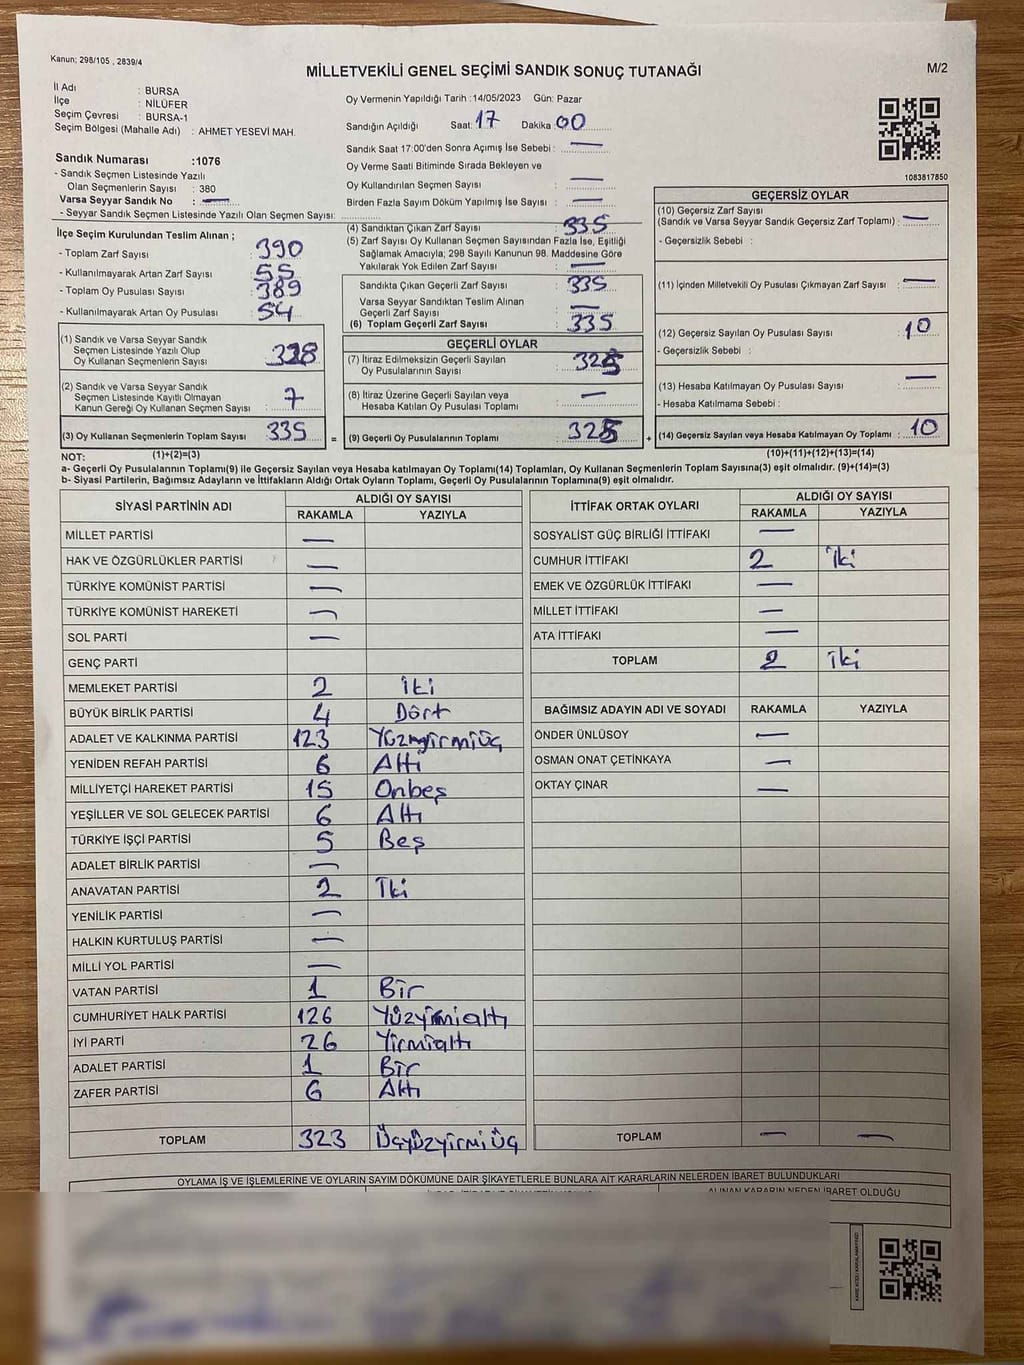 Kanun; 298/105 , 2839/4
MİLLETVEKİLİ GENEL SEÇİMİ SANDIK SONUÇ TUTANAĞI
M/2
İl Adı : BURSA
İlçe : NİLÜFER
Seçim Çevresi : BURSA-1
Seçim Bölgesi (Mahalle Adı) : AHMET YESEVİ MAH.
Oy Vermenin Yapıldığı Tarih :14/05/2023 Gün: Pazar
Sandığın Açıldığı Saat: 17 Dakika: 00
Sandık Saat 17:00'den Sonra Açımış İse Sebebi : —
Oy Verme Saati Bitiminde Sırada Bekleyen ve
Oy Kullandırılan Seçmen Sayısı : —
Birden Fazla Sayım Döküm Yapılmış İse Sayısı : —
1083817850
Sandık Numarası :1076
- Sandık Seçmen Listesinde Yazılı
Olan Seçmenlerin Sayısı : 380
Varsa Seyyar Sandık No : —
- Seyyar Sandık Seçmen Listesinde Yazılı Olan Seçmen Sayısı:
İlçe Seçim Kurulundan Teslim Alınan ;
- Toplam Zarf Sayısı : 390
- Kullanılmayarak Artan Zarf Sayısı : 55
- Toplam Oy Pusulası Sayısı : 389
- Kullanılmayarak Artan Oy Pusulası : 54
(1) Sandık ve Varsa Seyyar Sandık
Seçmen Listesinde Yazılı Olup
Oy Kullanan Seçmenlerin Sayısı : 328
(2) Sandık ve Varsa Seyyar Sandık
Seçmen Listesinde Kayıtlı Olmayan
Kanun Gereği Oy Kullanan Seçmen Sayısı : 7
(3) Oy Kullanan Seçmenlerin Toplam Sayısı : 335
(4) Sandıktan Çıkan Zarf Sayısı : 335
(5) Zarf Sayısı Oy Kullanan Seçmen Sayısından Fazla İse, Eşitliği
Sağlamak Amacıyla; 298 Sayılı Kanunun 98. Maddesine Göre
Yakılarak Yok Edilen Zarf Sayısı : —
Sandıkta Çıkan Geçerli Zarf Sayısı : 335
Varsa Seyyar Sandıktan Teslim Alınan
Geçerli Zarf Sayısı : —
(6) Toplam Geçerli Zarf Sayısı : 335
GEÇERLİ OYLAR
(7) İtiraz Edilmeksizin Geçerli Sayılan
Oy Pusulalarının Sayısı : 325
(8) İtiraz Üzerine Geçerli Sayılan veya
Hesaba Katılan Oy Pusulası Toplamı : —
= (9) Geçerli Oy Pusulalarının Toplamı : 325
GEÇERSİZ OYLAR
(10) Geçersiz Zarf Sayısı
(Sandık ve Varsa Seyyar Sandık Geçersiz Zarf Toplamı) : —
- Geçersizlik Sebebi :
(11) İçinden Milletvekili Oy Pusulası Çıkmayan Zarf Sayısı : —
(12) Geçersiz Sayılan Oy Pusulası Sayısı : 10
- Geçersizlik Sebebi :
(13) Hesaba Katılmayan Oy Pusulası Sayısı : —
- Hesaba Katılmama Sebebi :
+ (14) Geçersiz Sayılan veya Hesaba Katılmayan Oy Toplamı : 10
NOT: (1)+(2)=(3)
(10)+(11)+(12)+(13)=(14)
a- Geçerli Oy Pusulalarının Toplamı(9) ile Geçersiz Sayılan veya Hesaba katılmayan Oy Toplamı(14) Toplamları, Oy Kullanan Seçmenlerin Toplam Sayısına(3) eşit olmalıdır. (9)+(14)=(3)
b- Siyasi Partilerin, Bağımsız Adayların ve İttifakların Aldığı Ortak Oyların Toplamı, Geçerli Oy Pusulalarının Toplamına(9) eşit olmalıdır.
SİYASİ PARTİNİN ADI
ALDIĞI OY SAYISI
RAKAMLA YAZIYLA
MİLLET PARTİSİ —
HAK VE ÖZGÜRLÜKLER PARTİSİ —
TÜRKİYE KOMÜNİST PARTİSİ —
TÜRKİYE KOMÜNİST HAREKETİ —
SOL PARTİ —
GENÇ PARTİ
MEMLEKET PARTİSİ 2 İki
BÜYÜK BİRLİK PARTİSİ 4 Dört
ADALET VE KALKINMA PARTİSİ 123 Yüzyirmiüç
YENİDEN REFAH PARTİSİ 6 Altı
MİLLİYETÇİ HAREKET PARTİSİ 15 Onbeş
YEŞİLLER VE SOL GELECEK PARTİSİ 6 Altı
TÜRKİYE İŞÇİ PARTİSİ 5 Beş
ADALET BİRLİK PARTİSİ —
ANAVATAN PARTİSİ 2 İki
YENİLİK PARTİSİ —
HALKIN KURTULUŞ PARTİSİ —
MİLLİ YOL PARTİSİ —
VATAN PARTİSİ 1 Bir
CUMHURİYET HALK PARTİSİ 126 Yüzyirmialtı
İYİ PARTİ 26 Yirmialtı
ADALET PARTİSİ 1 Bir
ZAFER PARTİSİ 6 Altı
TOPLAM 323 Üçyüzyirmiüç
İTTİFAK ORTAK OYLARI
ALDIĞI OY SAYISI
RAKAMLA YAZIYLA
SOSYALİST GÜÇ BİRLİĞİ İTTİFAKI —
CUMHUR İTTİFAKI 2 İki
EMEK VE ÖZGÜRLÜK İTTİFAKI —
MİLLET İTTİFAKI —
ATA İTTİFAKI —
TOPLAM 2 İki
BAĞIMSIZ ADAYIN ADI VE SOYADI RAKAMLA YAZIYLA
ÖNDER ÜNLÜSOY —
OSMAN ONAT ÇETİNKAYA —
OKTAY ÇINAR —
TOPLAM — —
OYLAMA İŞ VE İŞLEMLERİNE VE OYLARIN SAYIM DÖKÜMÜNE DAİR ŞİKAYETLERLE BUNLARA AİT KARARLARIN NELERDEN İBARET BULUNDUKLARI
ALINAN KARARIN NEDEN İBARET OLDUĞU